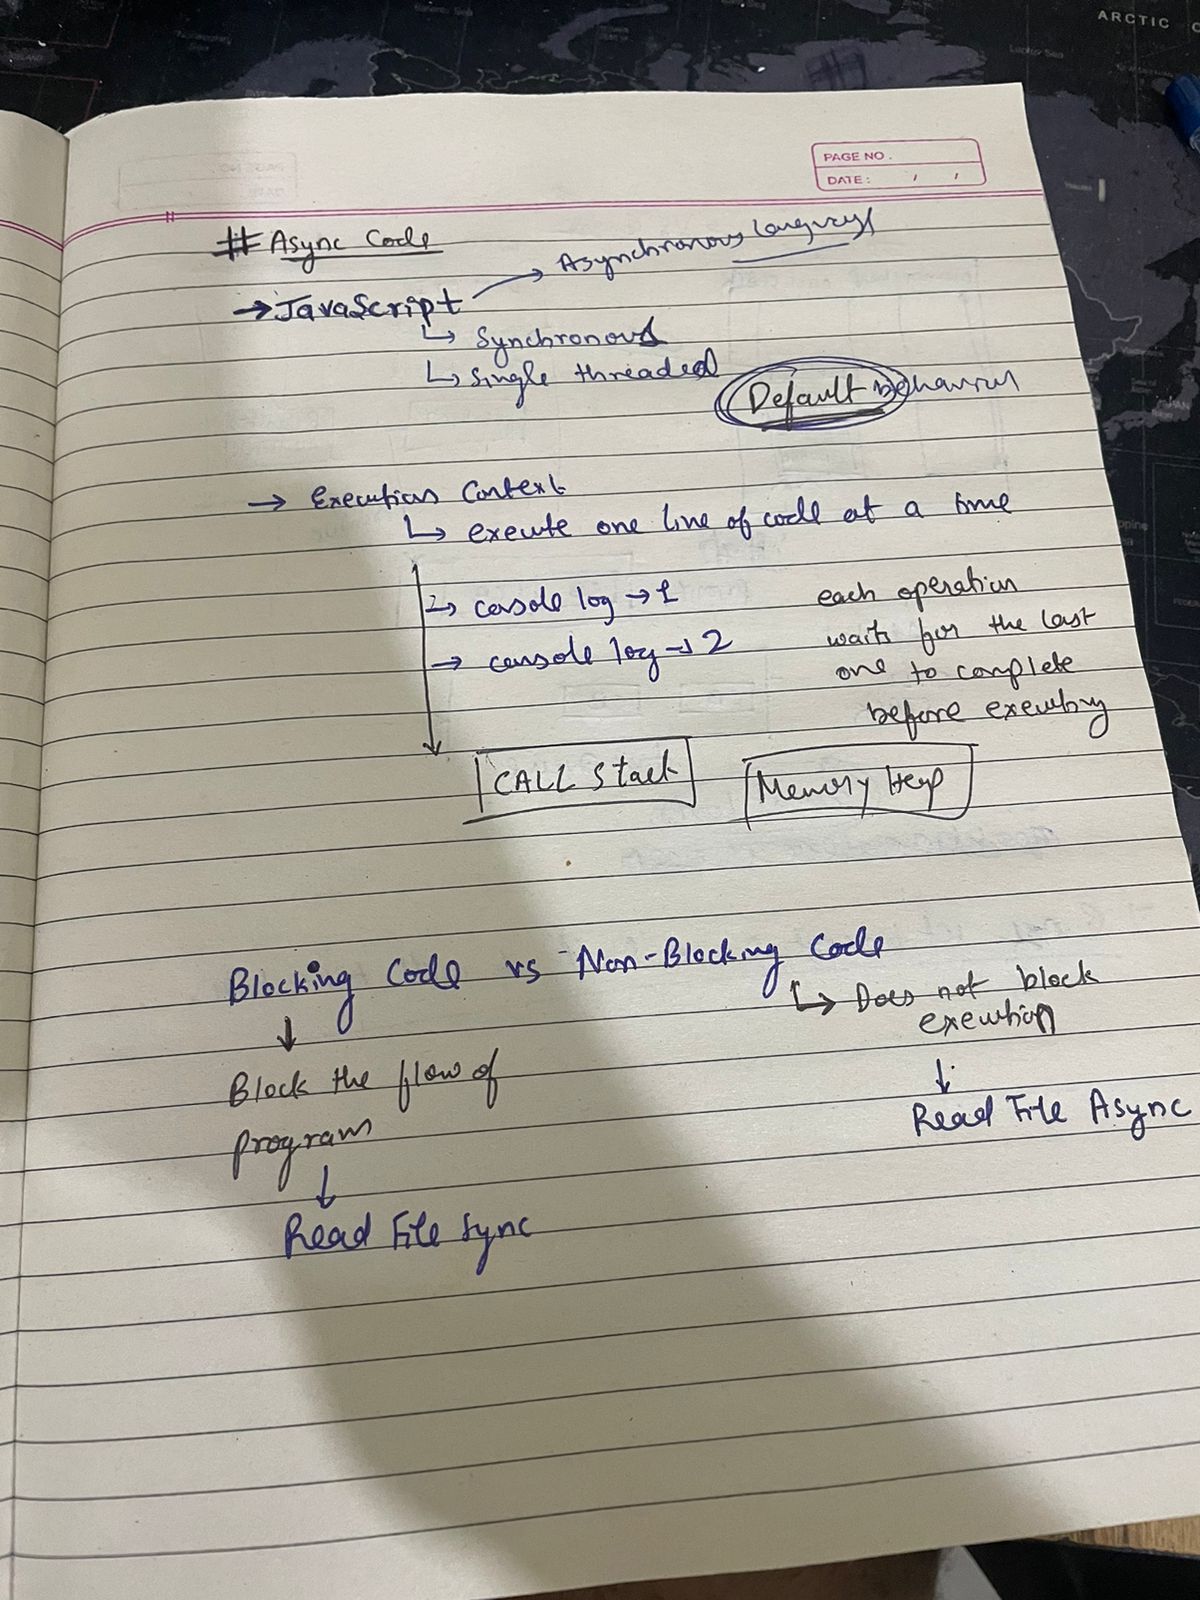 ARCTIC
PAGE NO.
DATE: / /
# Async Code
→ JavaScript → Asynchronous Language
↳ Synchronous
↳ Single threaded
Default behaviour
→ Execution Context
↳ execute one line of code at a time
↳ console log → 1
→ console log → 2
each operation
waits for the last
one to complete
before executing
CALL Stack
Memory Heap
Blocking Code vs Non-Blocking Code
↳ Does not block
execution
↓
Read File Async
↓
Block the flow of
program
↓
Read File Sync